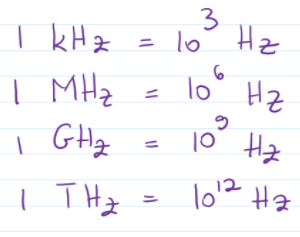 1 kHz = 10³ Hz
1 MHz = 10⁶ Hz
1 GHz = 10⁹ Hz
1 THz = 10¹² Hz